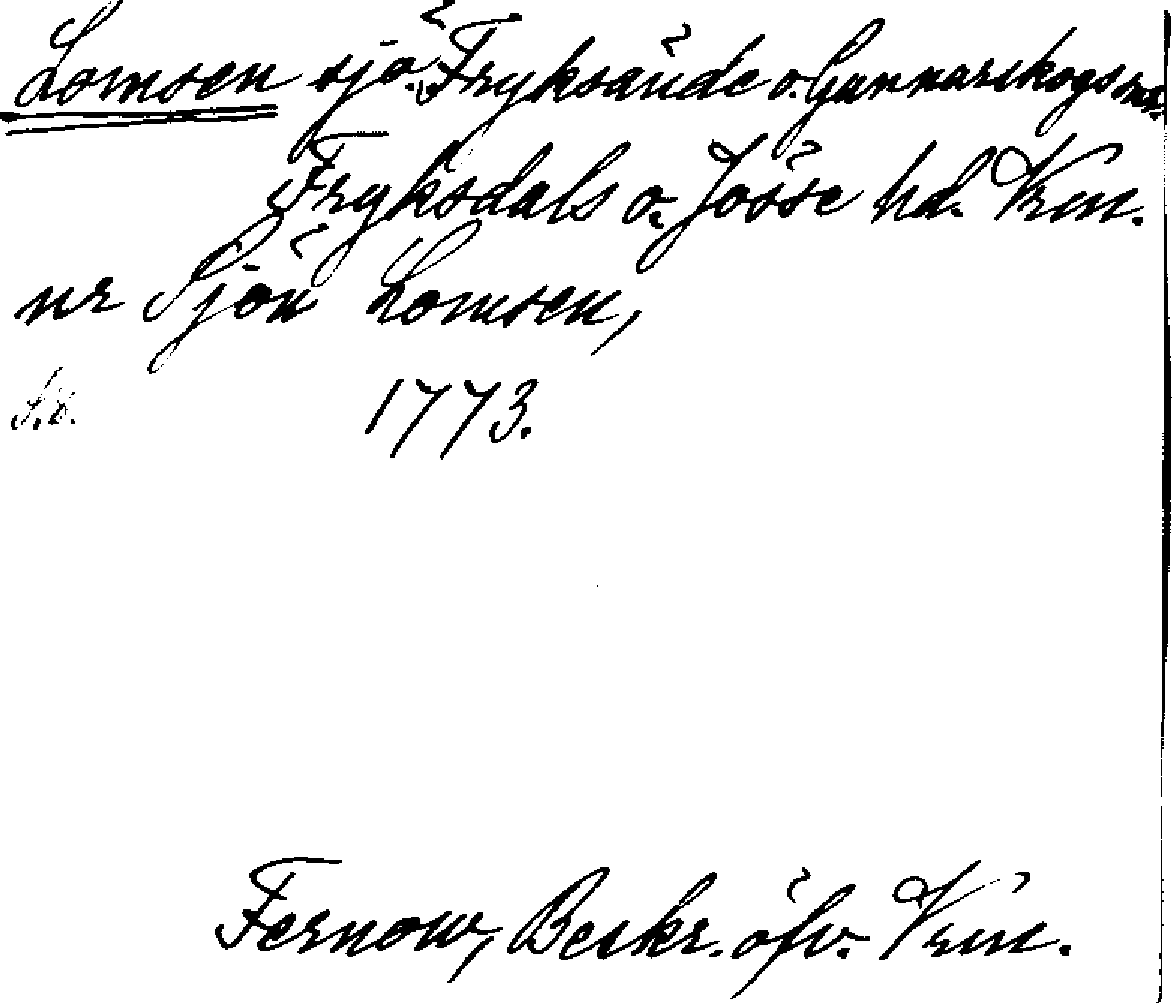 Lomsen sjö Fryksände o. Gunnarskogs snr.
Fryksdals o. Jösse hd. Vrm.
nr Sjön Lomsen,
1773.
Fernow, Beskr. öfv. Vrm.